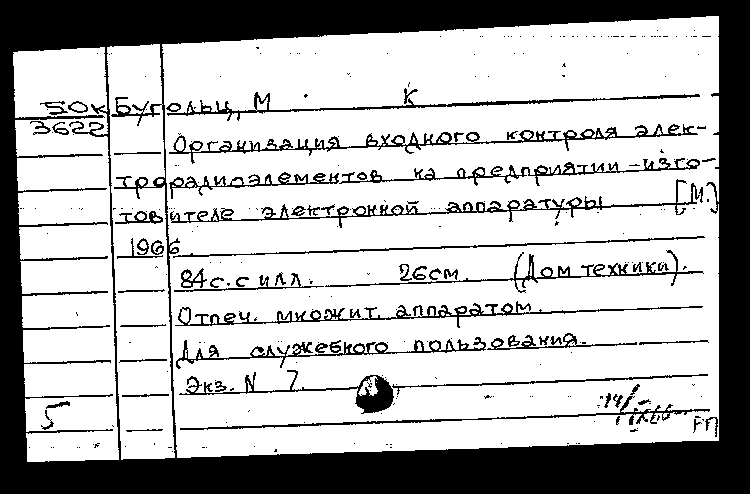 50к Бугольц, М К
3622
Организация входного контроля элек-
трорадиоэлементов на предприятии-изго-
товителе электронной аппаратуры [М.]
1966.
84 с. с илл. 26 см. (Дом техники).
Отпеч. множит. аппаратом.
Для служебного пользования.
Экз. N 7.
5
14/IX66
РП